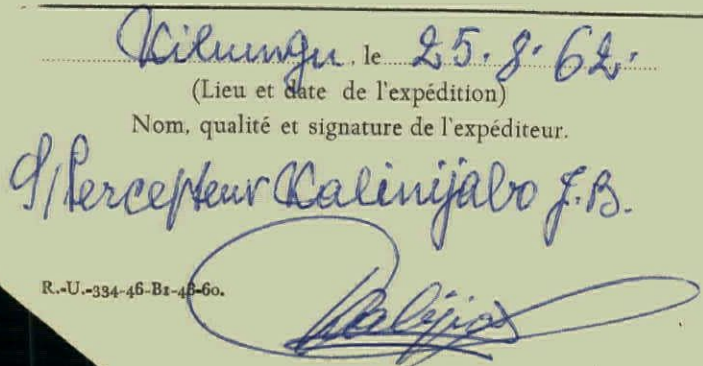 Kilungu, le 25.8.62.
(Lieu et date de l'expédition)
Nom, qualité et signature de l'expéditeur.
S/Percepteur Kalinijabo J.B.
R.-U.-334-46-B1-48-60.